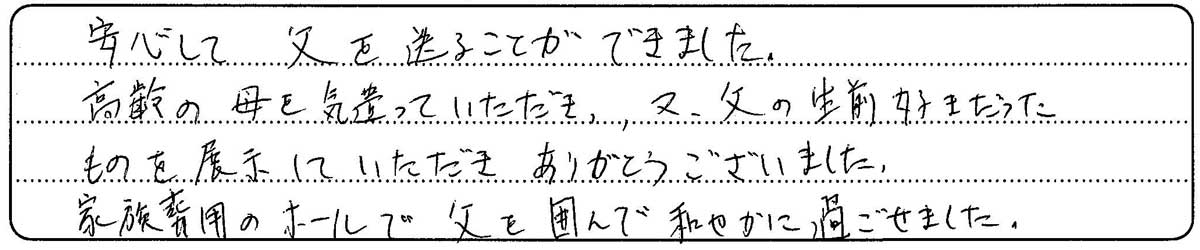 安心して 父を送ることができました。
高齢の母を気遣っていただき、又、父の生前好きだった
ものを展示していただき ありがとうございました。
家族専用のホールで 父を囲んで和やかに過ごせました。